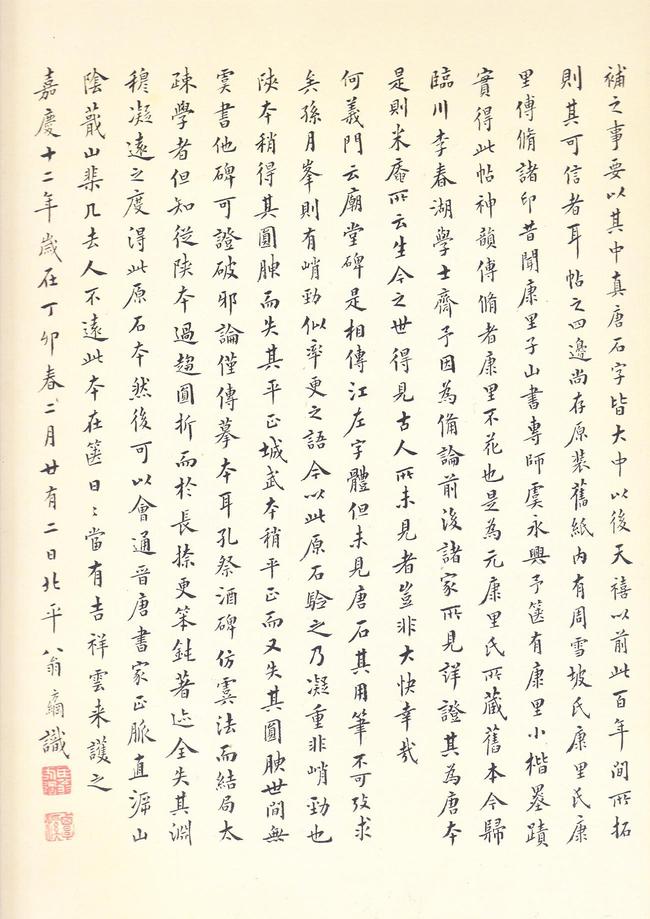 補之事要以其中真唐石字皆大中以後天禧以前此百年間所拓
則其可信者耳帖之四邊尚存原裝舊紙內有周雪坡氏康里氏康
里傅脩諸印昔聞康里子山書專師虞永興予篋有康里小楷墨蹟
實得此帖神韻傅脩者康里不花也是為元康里氏所藏舊本今歸
臨川李春湖學士齋予因為備論前後諸家所見詳證其為唐本
是則米菴所云生今之世得見古人所未見者豈非大快幸哉
何義門云廟堂碑是相傳江左字體但未見唐石其用筆不可攷求
矣孫月峯則有峭勁似率更之語今以此原石驗之乃凝重非峭勁也
陝本稍得其圓腴而失其平正城武本稍平正而又失其圓腴世間無
虞書他碑可證破邪論僅傳摹本耳孔祭酒碑仿虞法而結局太
疎學者但知從陝本過趨圓折而於長捺更笨鈍著迹全失其淵
穆凝遠之度得此原石本然後可以會通晉唐書家正脈直泝山
陰蕺山棐几去人不遠此本在篋日〻當有吉祥雲来護之
嘉慶十二年歲在丁卯春二月廿有二日北平翁方綱識